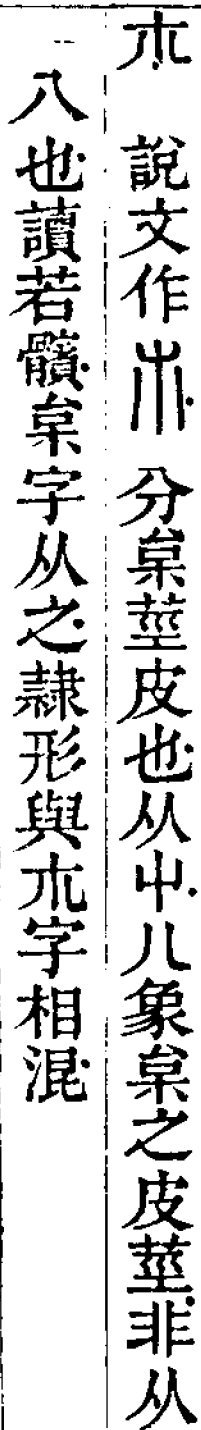 朩 說文作𣎳 分枲莖皮也从屮八象枲之皮莖非从
八也讀若髕枲字从之隷形與朩字相混